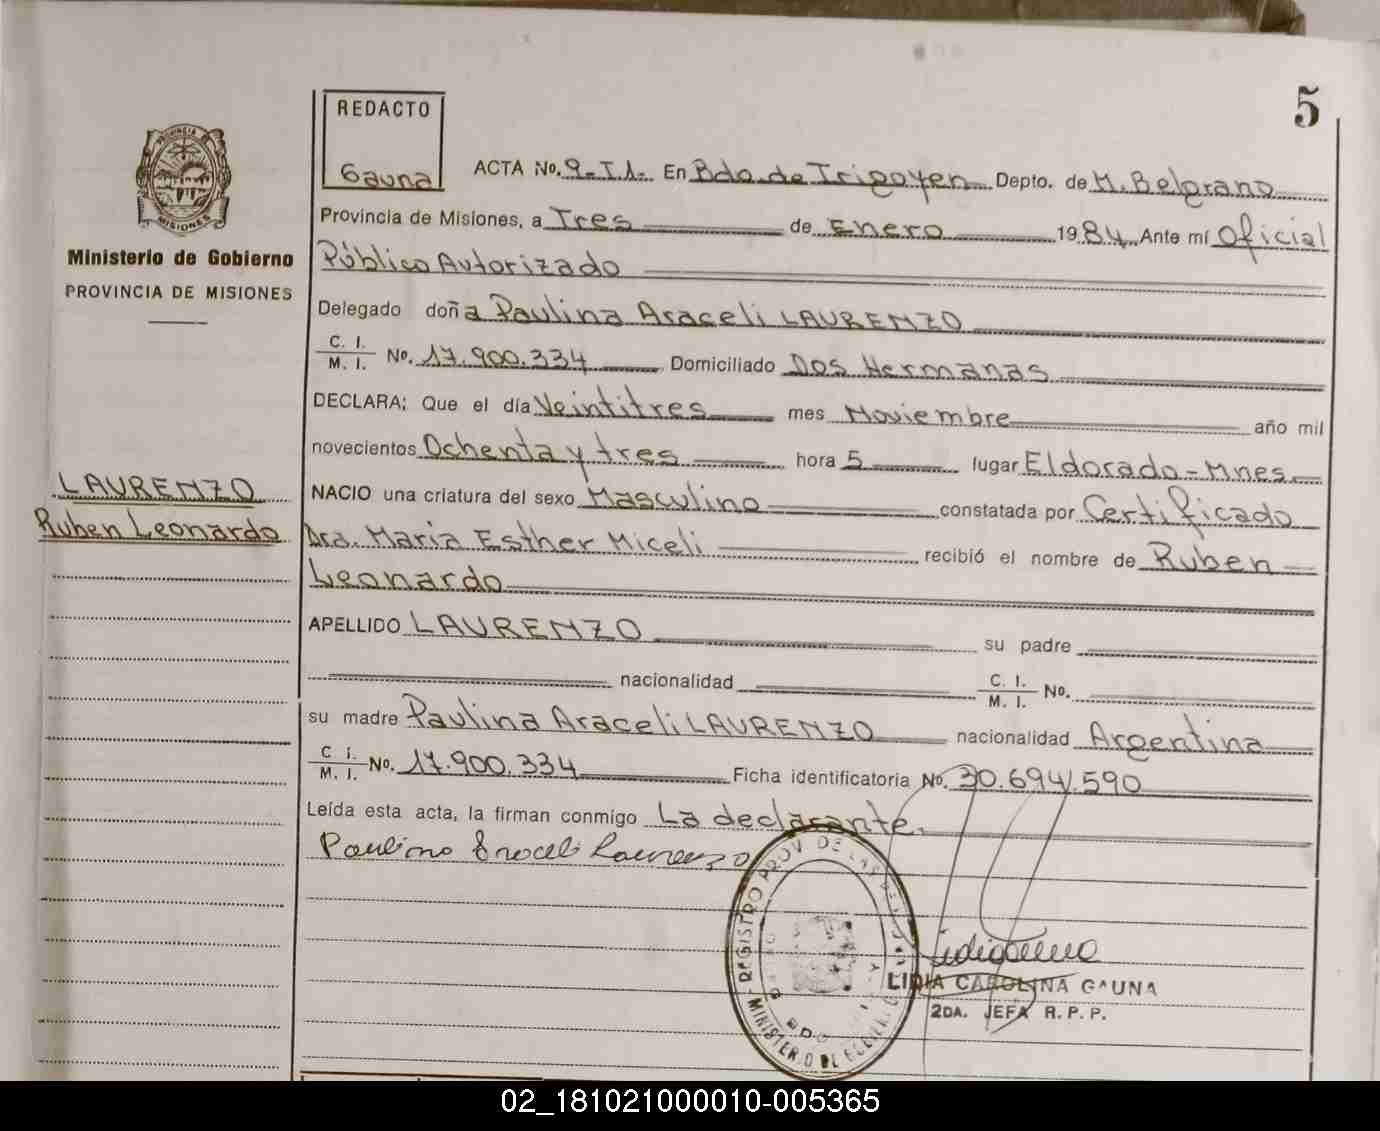 5
REDACTO
Gauna
ACTA No. 9-T.1.- En Bdo. de Irigoyen Depto. de M. Belgrano
Provincia de Misiones, a Tres de Enero 1984 Ante mí Oficial
Público Autorizado
PROVINCIA DE
MISIONES
Ministerio de Gobierno
PROVINCIA DE MISIONES
Delegado doña Paulina Araceli LAURENZO
C. I. / M. I. No. 17.900.334 Domiciliado Dos Hermanas
DECLARA; Que el día Veintitres mes Noviembre año mil
novecientos Ochenta y tres hora 5 lugar Eldorado-Mnes
LAURENZO
Ruben Leonardo
NACIO una criatura del sexo Masculino constatada por Certificado
Dra. Maria Esther Miceli recibió el nombre de Ruben
Leonardo
APELLIDO LAURENZO su padre
nacionalidad C. I. / M. I. No.
su madre Paulina Araceli LAURENZO nacionalidad Argentina
C. I. / M. I. No. 17.900.334 Ficha identificatoria No. 30.694.590
Leída esta acta, la firman conmigo La declarante.
Paulina Araceli Laurenzo
REGISTRO PROV. DE LAS
MINISTERIO DE
LIDIA CAROLINA GAUNA
2DA. JEFA R. P. P.
02_181021000010-005365